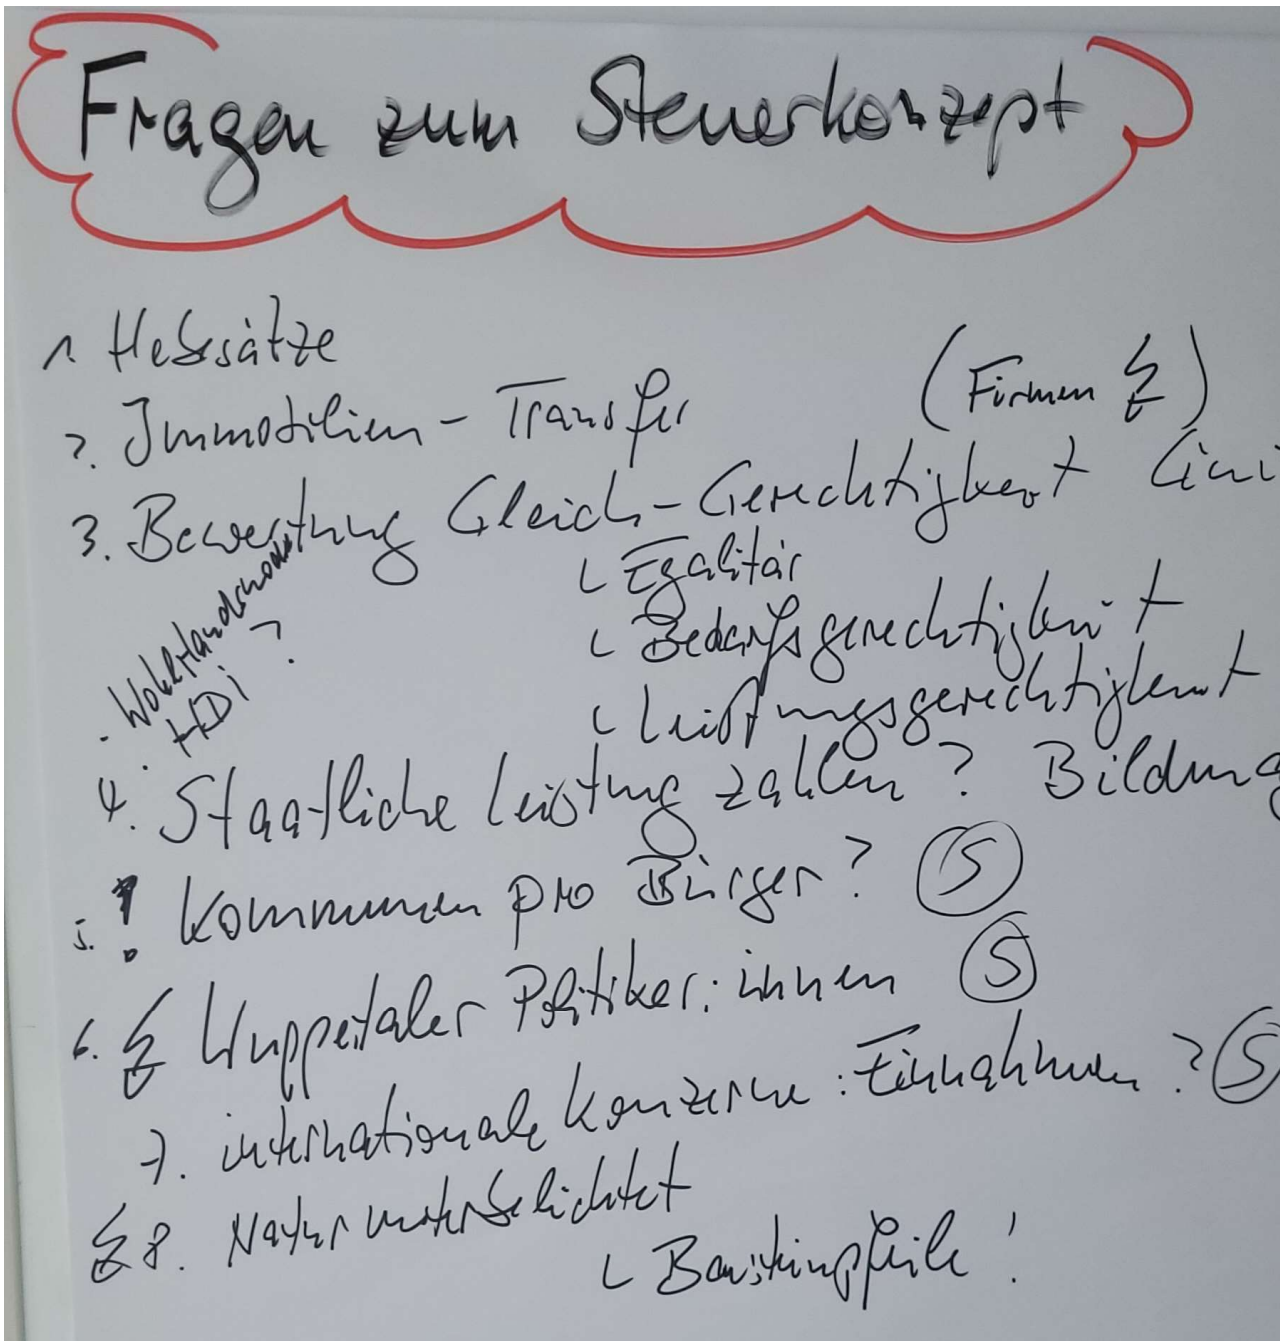 Fragen zum Steuerkonzept
1. Hebesätze
2. Immobilien - Transfer (Firmen ↯)
3. Bewertung Gleich-Gerechtigkeit Gini
└ Egalitär
└ Bedarfsgerechtigkeit
└ Leistungsgerechtigkeit
. Wohlstands
. HDI ?
4. Staatliche Leistung zahlen? Bildung
5. ! Kommunen pro Bürger? Ⓢ
6. ↯ Wuppertaler Politiker:innen Ⓢ
7. internationale Konzerne: Einnahmen? Ⓢ
↯ 8. Natur unterbelichtet
└ !